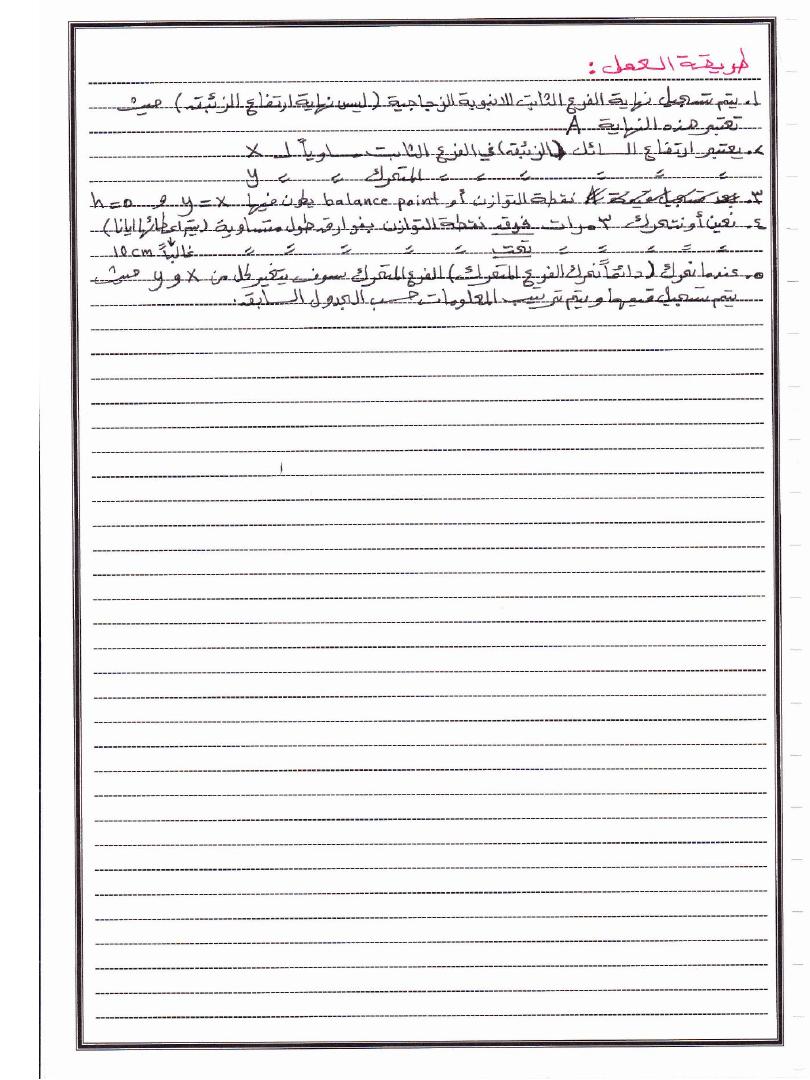 طريقة العمل :
١. يتم تسجيل نهاية الفرع الثابت للانبوبة الزجاجية (ليس نهاية ارتفاع الزئبقة) حيث
تعتبر هذه النهاية A
٢. يعتبر ارتفاع السائل (الزئبقة) في الفرع الثابت مساوياً لـ X
〃 〃 〃 〃 〃 المتحرك 〃 〃 y
٣. نقطة التوازن أو balance point يكون فيها y = x و h=0
٤. نعين أو نتحرك ٣ مرات فوق نقطة التوازن بفوارق طول متساوية (يتم اعطائها ايانا)
〃 〃 〃 〃 〃 تحت 〃 〃 〃 〃 〃 غالباً 10 cm
٥. عندما نحرك (دائماً نحرك الفرع المتحرك) الفرع المتحرك سوف يتغير كل من x و y حيث
يتم تسجيل قيمها و يتم ترتيب المعلومات حسب الجدول السابق.